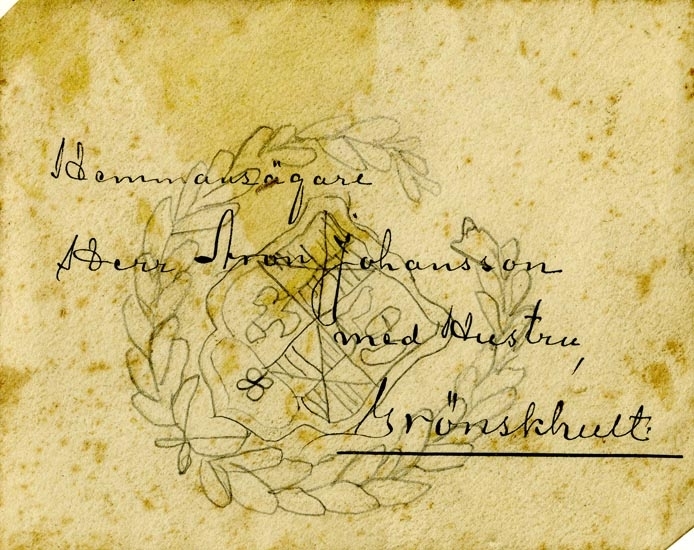 Hemmansägare
Herr Aron Johansson
med Hustru,
Grönskhult.